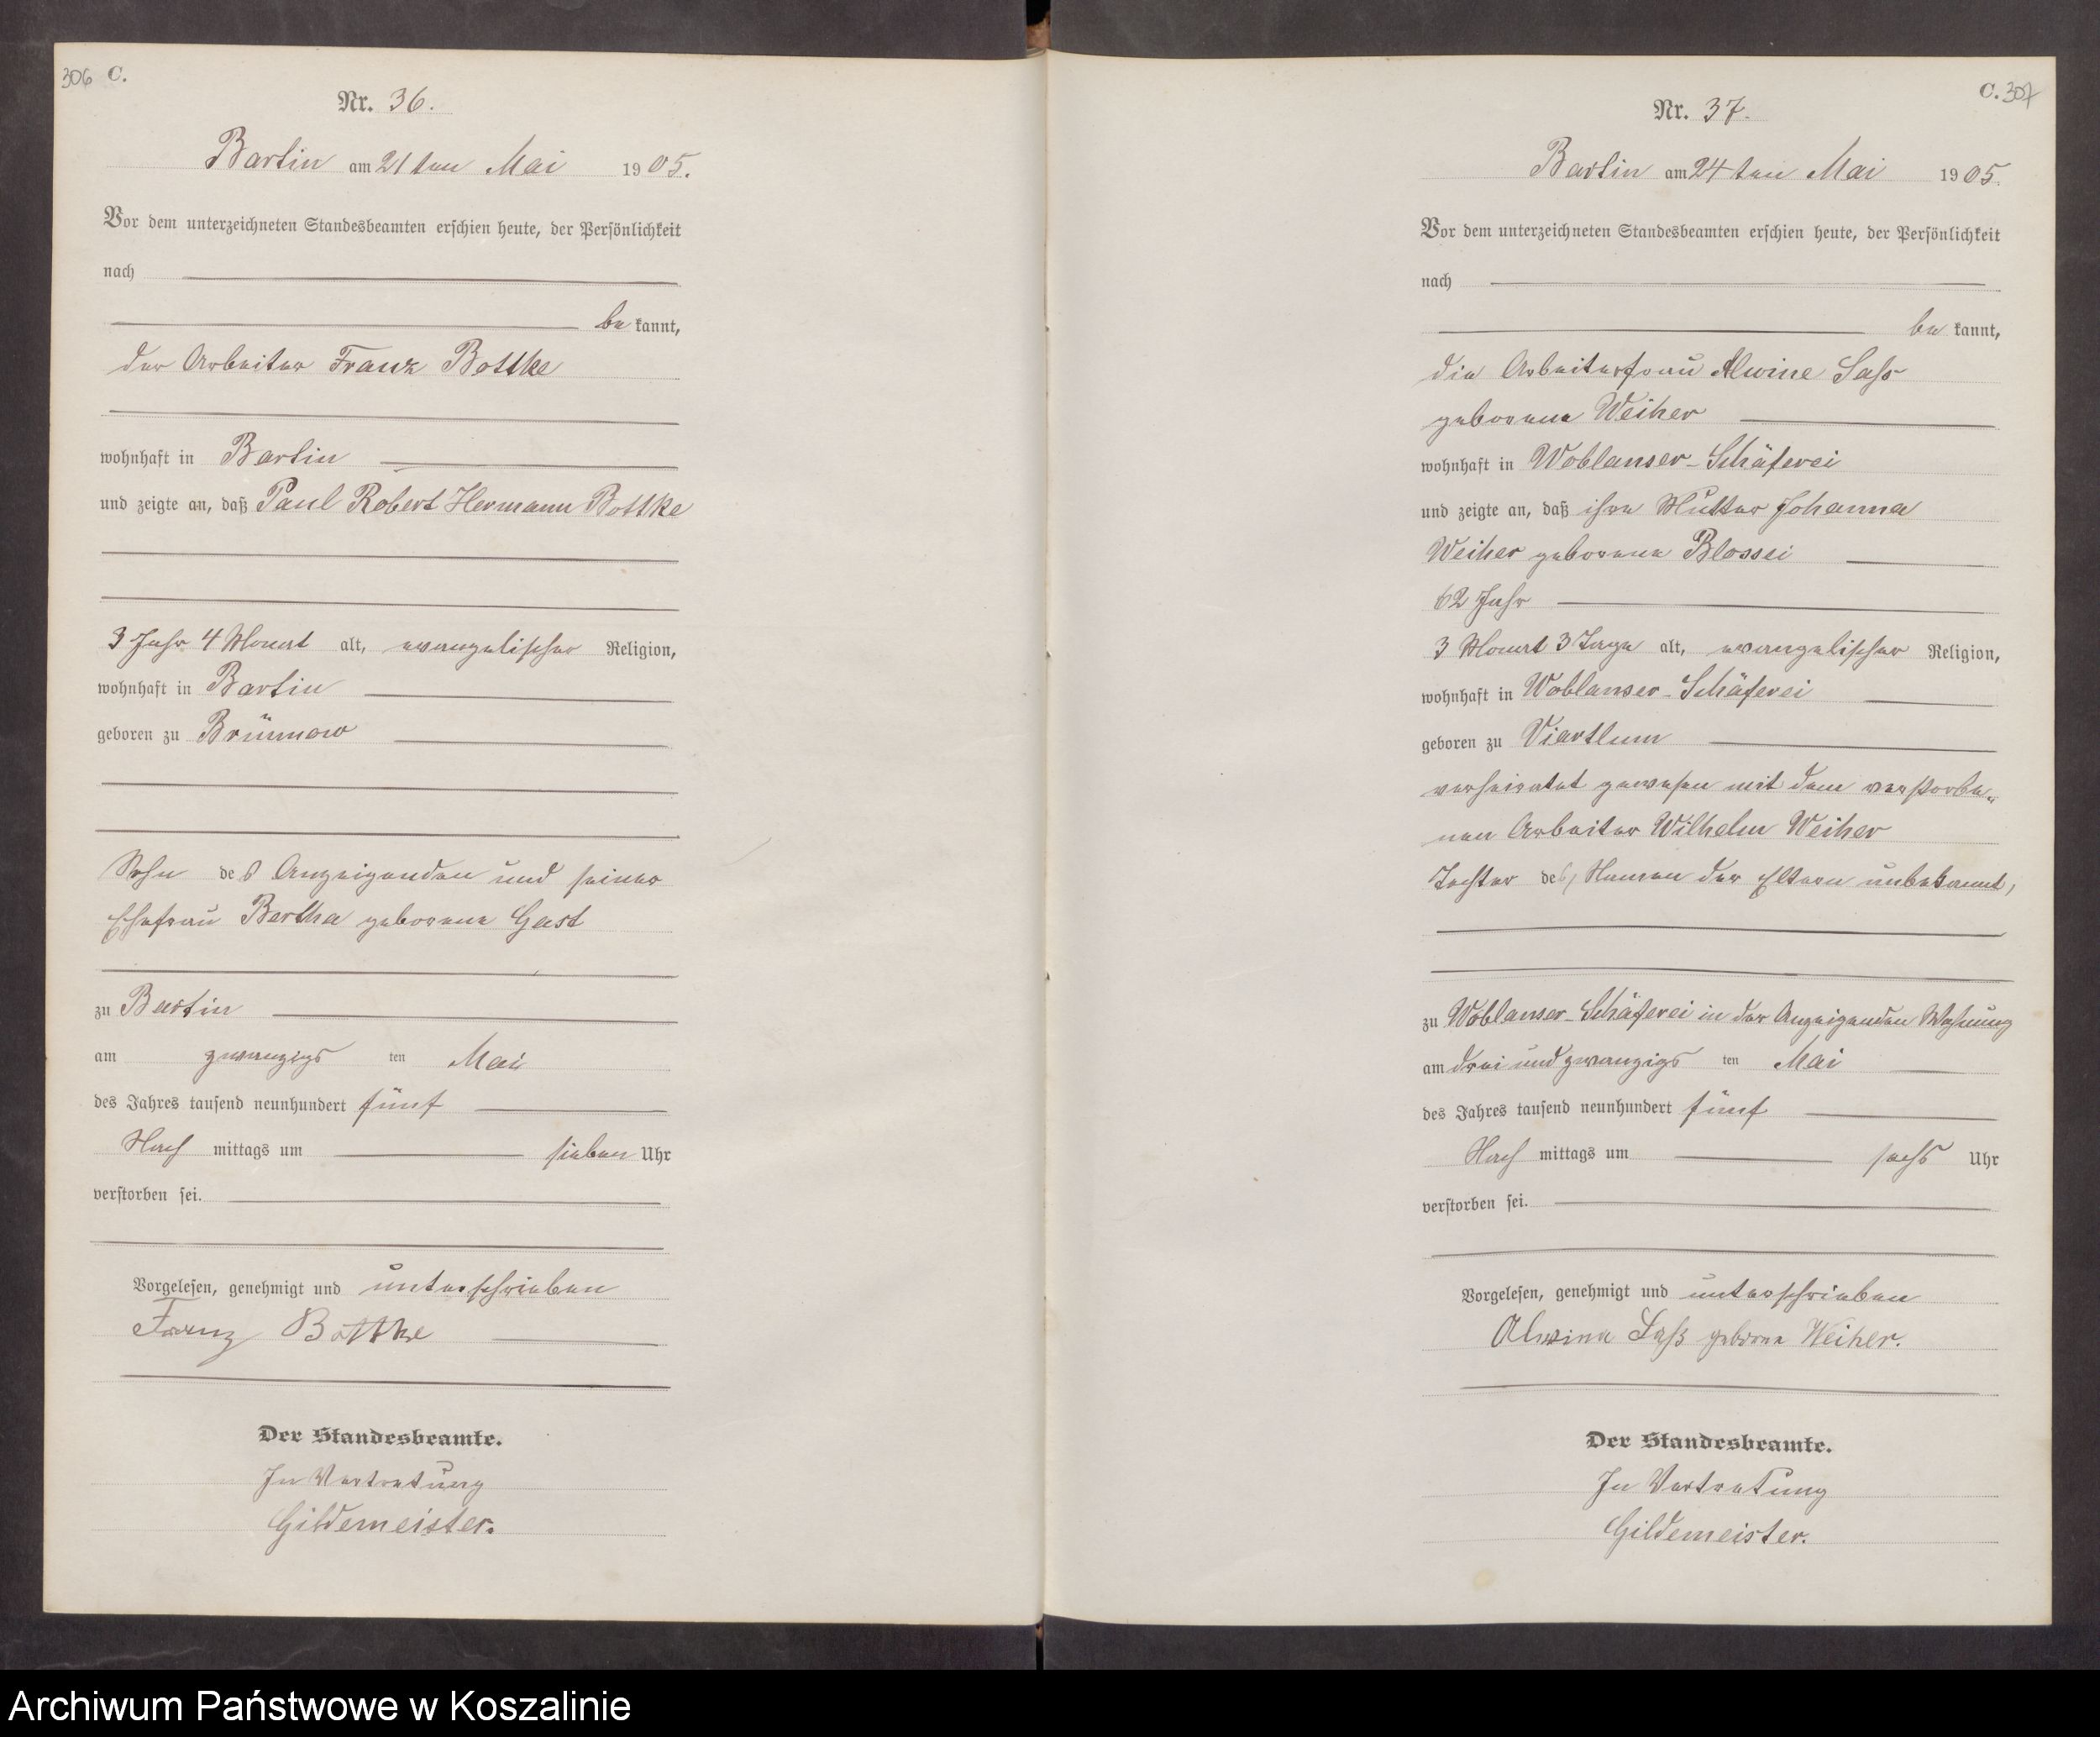 306 C.
Nr. 36.
Bartin am 21ten Mai 1905.
Vor dem unterzeichneten Standesbeamten erschien heute, der Persönlichkeit
nach
be kannt,
der Arbeiter Franz Bottke
wohnhaft in Bartin
und zeigte an, daß Paul Robert Hermann Bottke
3 Jahr 4 Monat alt, evangelischer Religion,
wohnhaft in Bartin
geboren zu Brünnow
Sohn des Anzeigenden und seiner
Ehefrau Bertha geborene Gast
zu Bartin
am zwanzigs ten Mai
des Jahres tausend neunhundert fünf
Nach mittags um sieben Uhr
verstorben sei.
Vorgelesen, genehmigt und unterschrieben
Franz Bottke
Der Standesbeamte.
In Vertretung
Gildemeister.
C. 307
Nr. 37.
Bartin am 24ten Mai 1905.
Vor dem unterzeichneten Standesbeamten erschien heute, der Persönlichkeit
nach
be kannt,
die Arbeiterfrau Alwine Sass
geborene Weiher
wohnhaft in Woblanser-Schäferei
und zeigte an, daß ihre Mutter Johanna
Weiher geborene Blossei
62 Jahr
3 Monat 3 Tage alt, evangelischer Religion,
wohnhaft in Woblanser-Schäferei
geboren zu Viartlum
verheiratet gewesen mit dem verstorbe-
nen Arbeiter Wilhelm Weiher
Tochter de Namen der Eltern unbekannt,
zu Woblanser-Schäferei in der Anzeigenden Wohnung
am drei und zwanzigs ten Mai
des Jahres tausend neunhundert fünf
Nach mittags um sechs Uhr
verstorben sei.
Vorgelesen, genehmigt und unterschrieben
Alwine Saß geborne Weiher.
Der Standesbeamte.
In Vertretung
Gildemeister.
Archiwum Państwowe w Koszalinie